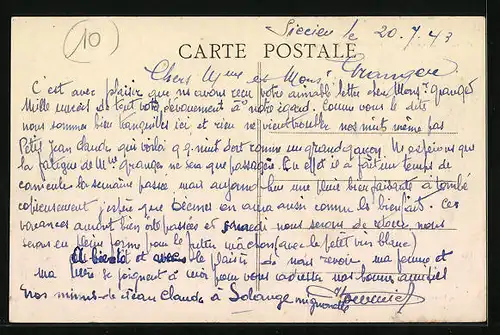 10
le 20.7.43
CARTE POSTALE
Chers Mme et Monsr Granger
C'est avec plaisir que nous avons reçu votre aimable lettre cher Monsr Granger
Mille mercis de tout votre dévouement à notre égard. Comme vous le dites
nous sommes bien tranquilles ici et rien ne vient troubler nos nuits même pas
Petit Jean Claude qui voilà q.q. nuit dort comme un grand garçon. Ns espérons que
la fatigue de Mme Granger ne sera que passagère. En effet il a fait un temps de
canicule la semaine passée mais aujourd'hui une pluie bien faisante à tombé
copieusement j'espère que Décines en aura aussi comme les bienfaits. Ces
vacances auront bien été passées et samedi nous serons de retour nous
serons en pleine forme pour le petit machon (avec le petit vin blanc)
A bientôt et avec le plaisir de vous revoir ma femme et
ma se joignent à moi pour vous adresser nos bonnes amitiés
Nos mimis de Jean Claude à Solange mignonette